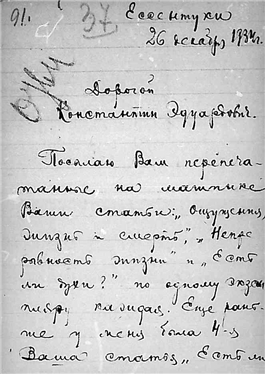 91. 37 Ессентуки
26 декабря 1934 г.
Дорогой
Константин Эдуардович.
Посылаю Вам перепеча-
танные на машинке
Ваши статьи: „Ощущения,
жизнь и смерть", „Непре
рывность жизни" и „Есть
ли духи?" по одному экзем
пляру каждая. Еще рань-
ше у меня была 4-я
Ваша статья „Есть ли